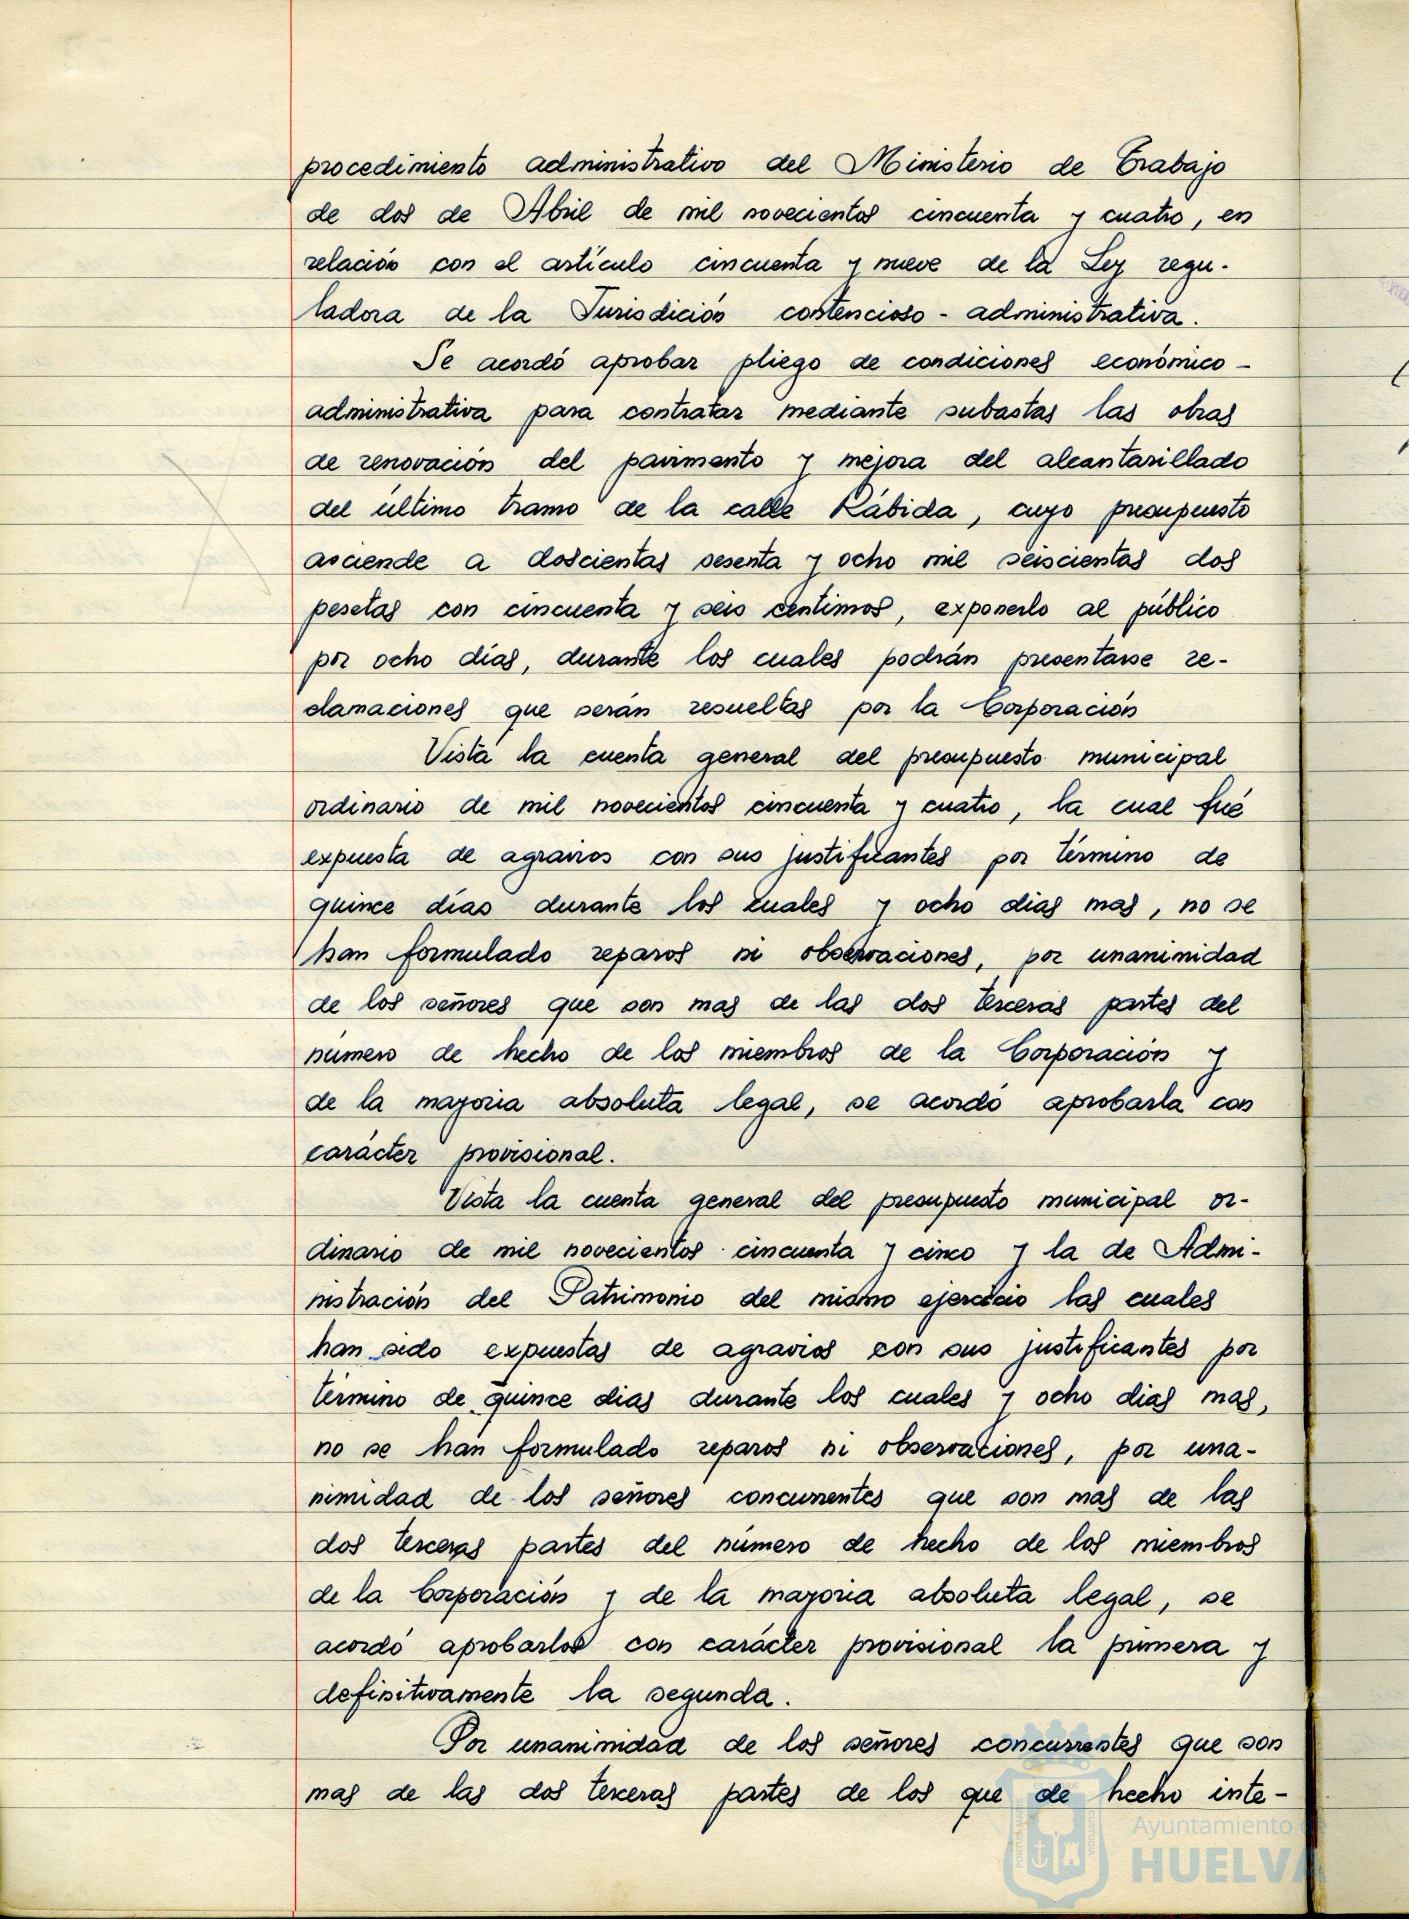 procedimiento administrativo del Ministerio de Trabajo
de dos de Abril de mil novecientos cincuenta y cuatro, en
relación con el artículo cincuenta y nueve de la Ley regu-
ladora de la Jurisdición contencioso-administrativa.
Se acordó aprobar pliego de condiciones económico-
administrativa para contratar mediante subastas las obras
de renovación del pavimento y mejora del alcantarillado
del último tramo de la calle Rábida, cuyo presupuesto
asciende a doscientas sesenta y ocho mil seiscientas dos
pesetas con cincuenta y seis centimos, exponerlo al público
por ocho días, durante los cuales podrán presentarse re-
clamaciones que serán resueltas por la Corporación
Vista la cuenta general del presupuesto municipal
ordinario de mil novecientos cincuenta y cuatro, la cual fué
expuesta de agravios con sus justificantes por término de
quince días durante los cuales y ocho dias mas, no se
han formulado reparos ni observaciones, por unanimidad
de los señores que son mas de las dos terceras partes del
número de hecho de los miembros de la Corporación y
de la mayoria absoluta legal, se acordó aprobarla con
carácter provisional.
Vista la cuenta general del presupuesto municipal or-
dinario de mil novecientos cincuenta y cinco y la de Admi-
nistración del Patrimonio del mismo ejercicio las cuales
han sido expuestas de agravios con sus justificantes por
término de quince dias durante los cuales y ocho dias mas,
no se han formulado reparos ni observaciones, por una-
nimidad de los señores concurrentes que son mas de las
dos terceras partes del número de hecho de los miembros
de la Corporación y de la mayoria absoluta legal, se
acordó aprobarlos con carácter provisional la primera y
definitivamente la segunda.
Por unanimidad de los señores concurrentes que son
mas de las dos terceras partes de los que de hecho inte-
Ayuntamiento de
HUELVA